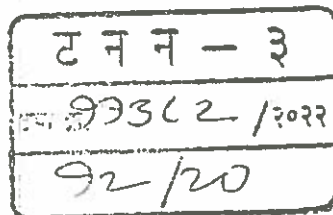 ट न न - ३
११३८२ /२०२२
१२/२०